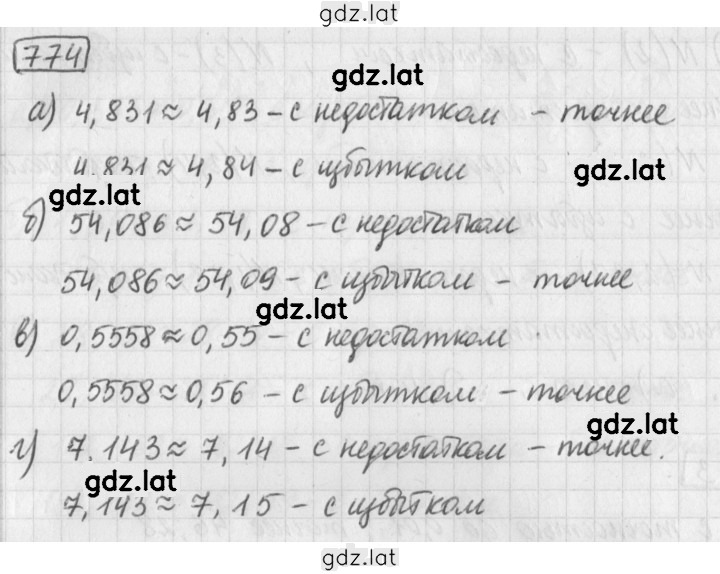 gdz.lat
774
gdz.lat
а) 4,831 ≈ 4,83 – с недостатком – точнее
4,831 ≈ 4,84 – с избытком gdz.lat
gdz.lat
б) 54,086 ≈ 54,08 – с недостатком
54,086 ≈ 54,09 – с избытком – точнее
gdz.lat
в) 0,5558 ≈ 0,55 – с недостатком
0,5558 ≈ 0,56 – с избытком – точнее
gdz.lat
г) 7,143 ≈ 7,14 – с недостатком – точнее.
gdz.lat
7,143 ≈ 7,15 – с избытком
gdz.lat